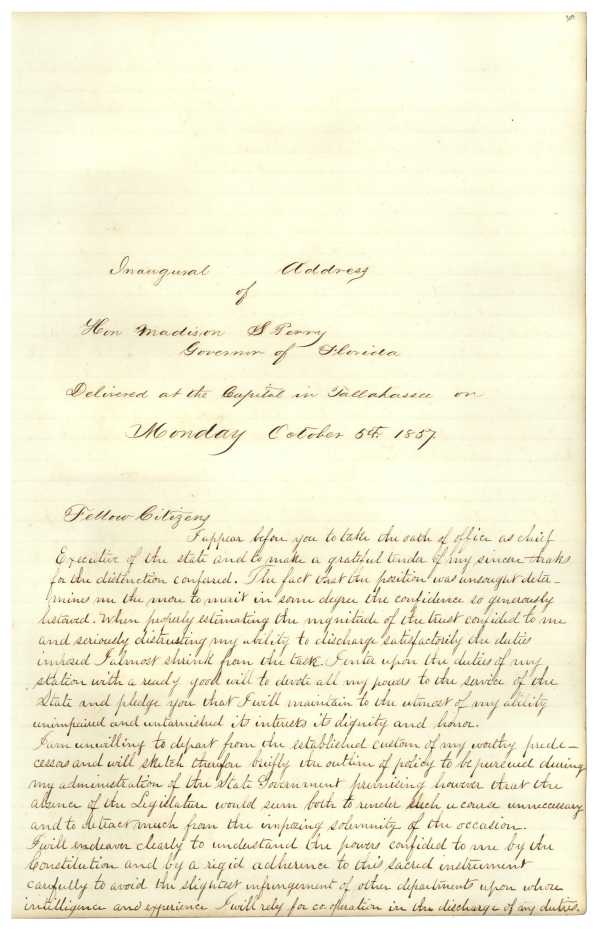 Inaugural Address
of
Hon Madison S Perry
Governor of Florida
Delivered at the Capitol in Tallahassee on
Monday October 5th 1857
Fellow Citizens
I appear before you to take the oath of office as chief
Executive of the state and to make a grateful tender of my sincere thaks
for the distinction confered. The fact that the position was unsought deter-
mines me the more to merit in some degree the confidence so generously
bestowed. When properly estimating the mgnitude of the trust confided to me
and seriously distrusting my ability to discharge satisfactorily the duties
imposed I almost shrink from the task. I enter upon the duties of my
station with a ready good will to devote all my powers to the service of the
State and pledge you that I will maintain to the utmost of my ability
unimpaired and untarnished its interests its dignity and honor.
I am unwilling to depart from the established custom of my worthy prede-
cessors and will sketch therefore briefly the outline of policy to be persued during
my administration of the State Government premising however that the
absence of the Legislature would seem both to render such a course unnecessary
and to detract much from the imposing solemnity of the occasion.
I will endeavor clearly to understand the powers confided to me by the
Constitution and by a rigid adherence to this sacred instrument
carefully to avoid the slightest infringement of other departments upon whose
intelligence and experience I will rely for co-operation in the discharge of my duties.